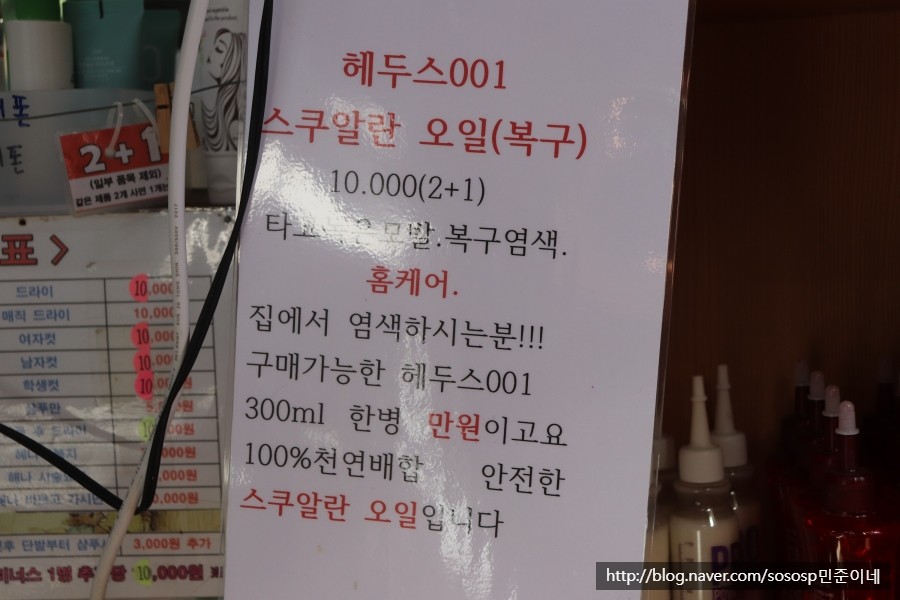 헤두스001
스쿠알란 오일(복구)
10.000(2+1)
모발.복구염색.
홈케어.
집에서 염색하시는분!!!
구매가능한 헤두스001
300ml 한병 만원이고요
100%천연배합 안전한
스쿠알란 오일입니다
2+1
(일부 품목 제외)
같은 제품 2개 사면 1개는
표 >
드라이 10,000
매직 드라이 10,000
여자컷 10,000
남자컷 10,000
학생컷 10,000원
샴푸만
3,000원 추가
10,000원
http://blog.naver.com/sososp민준이네